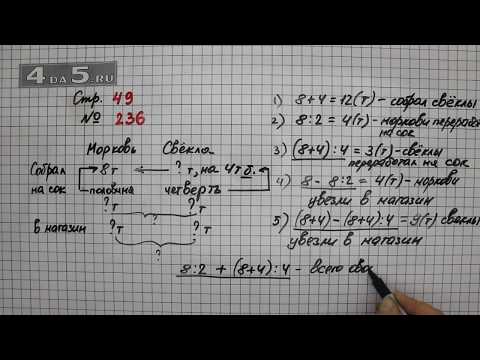 4 DA 5.RU
Стр. 49
№ 236
Морковь Свёкла
Собрал 8т ? т, на 4т б.
на сок половина четверть
? т ? т
?
в магазин ? т ? т
?
1) 8+4=12(т) - собрал свёклы
2) 8:2 = 4(т) - моркови переработал
на сок
3) (8+4):4 = 3(т) - свёклы
переработал на сок
4) 8 - 8:2 = 4(т) - моркови
увезли в магазин
5) (8+4)-(8+4):4=9(т) свёклы
увезли в магазин
8:2 + (8+4):4 - всего